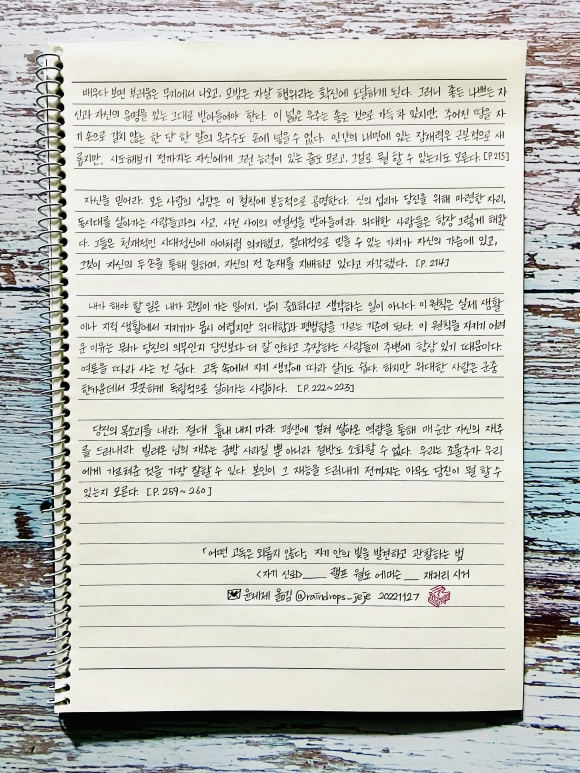 배우다 보면 부러움은 무지에서 나오고, 모방은 자살 행위라는 확신에 도달하게 된다. 그러니 좋든 나쁘든 자
신과 자신의 운명을 있는 그대로 받아들여야 한다. 이 넓은 우주는 좋은 것으로 가득 차 있지만, 주어진 땅을 자
기 손으로 갈지 않는 한 단 한 알의 옥수수도 손에 넣을 수 없다. 인간의 내면에 있는 잠재력은 근본적으로 새
롭지만, 시도해보기 전까지는 자신에게 그런 능력이 있는 줄도 모르고, 그걸로 뭘 할 수 있는지도 모른다. [P.213]
자신을 믿어라. 모든 사람의 심장은 이 철칙에 본능적으로 공명한다. 신의 섭리가 당신을 위해 마련한 자리,
동시대를 살아가는 사람들과의 사고, 사건 사이의 연결성을 받아들여라. 위대한 사람들은 항상 그렇게 해왔
다. 그들은 천재적인 시대정신에 아이처럼 의지했고, 절대적으로 믿을 수 있는 가치가 자신의 가슴에 있고,
그것이 자신의 두 손을 통해 일하며, 자신의 전 존재를 지배하고 있다고 자각했다. [P.214]
내가 해야 할 일은 내가 관심이 가는 일이지, 남이 중요하다고 생각하는 일이 아니다. 이 원칙은 실제 생활
이나 지적 생활에서 지키기가 몹시 어렵지만 위대함과 평범함을 가르는 기준이 된다. 이 원칙을 지키기 어려
운 이유는 뭐가 당신의 의무인지 당신보다 더 잘 안다고 주장하는 사람들이 주변에 항상 있기 때문이다.
여론을 따라 사는 건 쉽다. 고독 속에서 자기 생각에 따라 살기도 쉽다. 하지만 위대한 사람은 군중
한가운데서 꿋꿋하게 독립적으로 살아가는 사람이다. [P.222~223]
당신의 목소리를 내라. 절대 흉내 내지 마라. 평생에 걸쳐 쌓아온 역량을 통해 매 순간 자신의 재주
를 드러내라. 빌려온 남의 재주는 금방 사라질 뿐 아니라 절반도 소화할 수 없다. 우리는 조물주가 우리
에게 가르쳐준 것을 가장 잘할 수 있다. 본인이 그 재능을 드러내기 전까지는 아무도 당신이 뭘 할 수
있는지 모른다. [P.259~260]
「어떤 고독은 외롭지 않다」 자기 안의 빛을 발견하고 관찰하는 법
<자기 신뢰> ___ 랠프 월도 에머슨 ___ 재커리 시거
윤제제 옮김 @raindrops_jeje 20221127